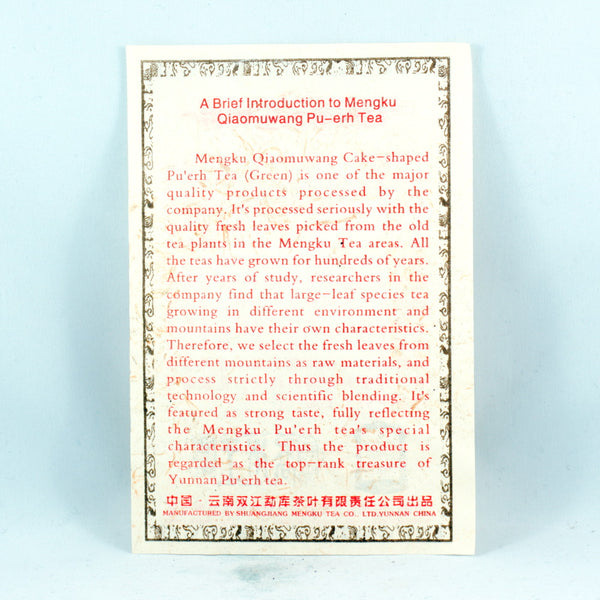 A Brief Introduction to Mengku
Qiaomuwang Pu-erh Tea
Mengku Qiaomuwang Cake-shaped
Pu'erh Tea (Green) is one of the major
quality products processed by the
company. It's processed seriously with the
quality fresh leaves picked from the old
tea plants in the Mengku Tea areas. All
the teas have grown for hundreds of years.
After years of study, researchers in the
company find that large-leaf species tea
growing in different environment and
mountains have their own characteristics.
Therefore, we select the fresh leaves from
different mountains as raw materials, and
process strictly through traditional
technology and scientific blending. It's
featured as strong taste, fully reflecting
the Mengku Pu'erh tea's special
characteristics. Thus the product is
regarded as the top-rank treasure of
Yunnan Pu'erh tea.
中国·云南双江勐库茶叶有限责任公司出品
MANUFACTURED BY SHUANGJIANG MENGKU TEA CO., LTD.YUNNAN CHINA